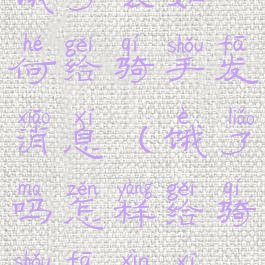 hé gěi qí shǒu fā
何给骑手发
xiāo xī è liǎo
消息（饿了
ma zěn yàng gěi qí
吗怎样给骑
shǒu fā xìn xī